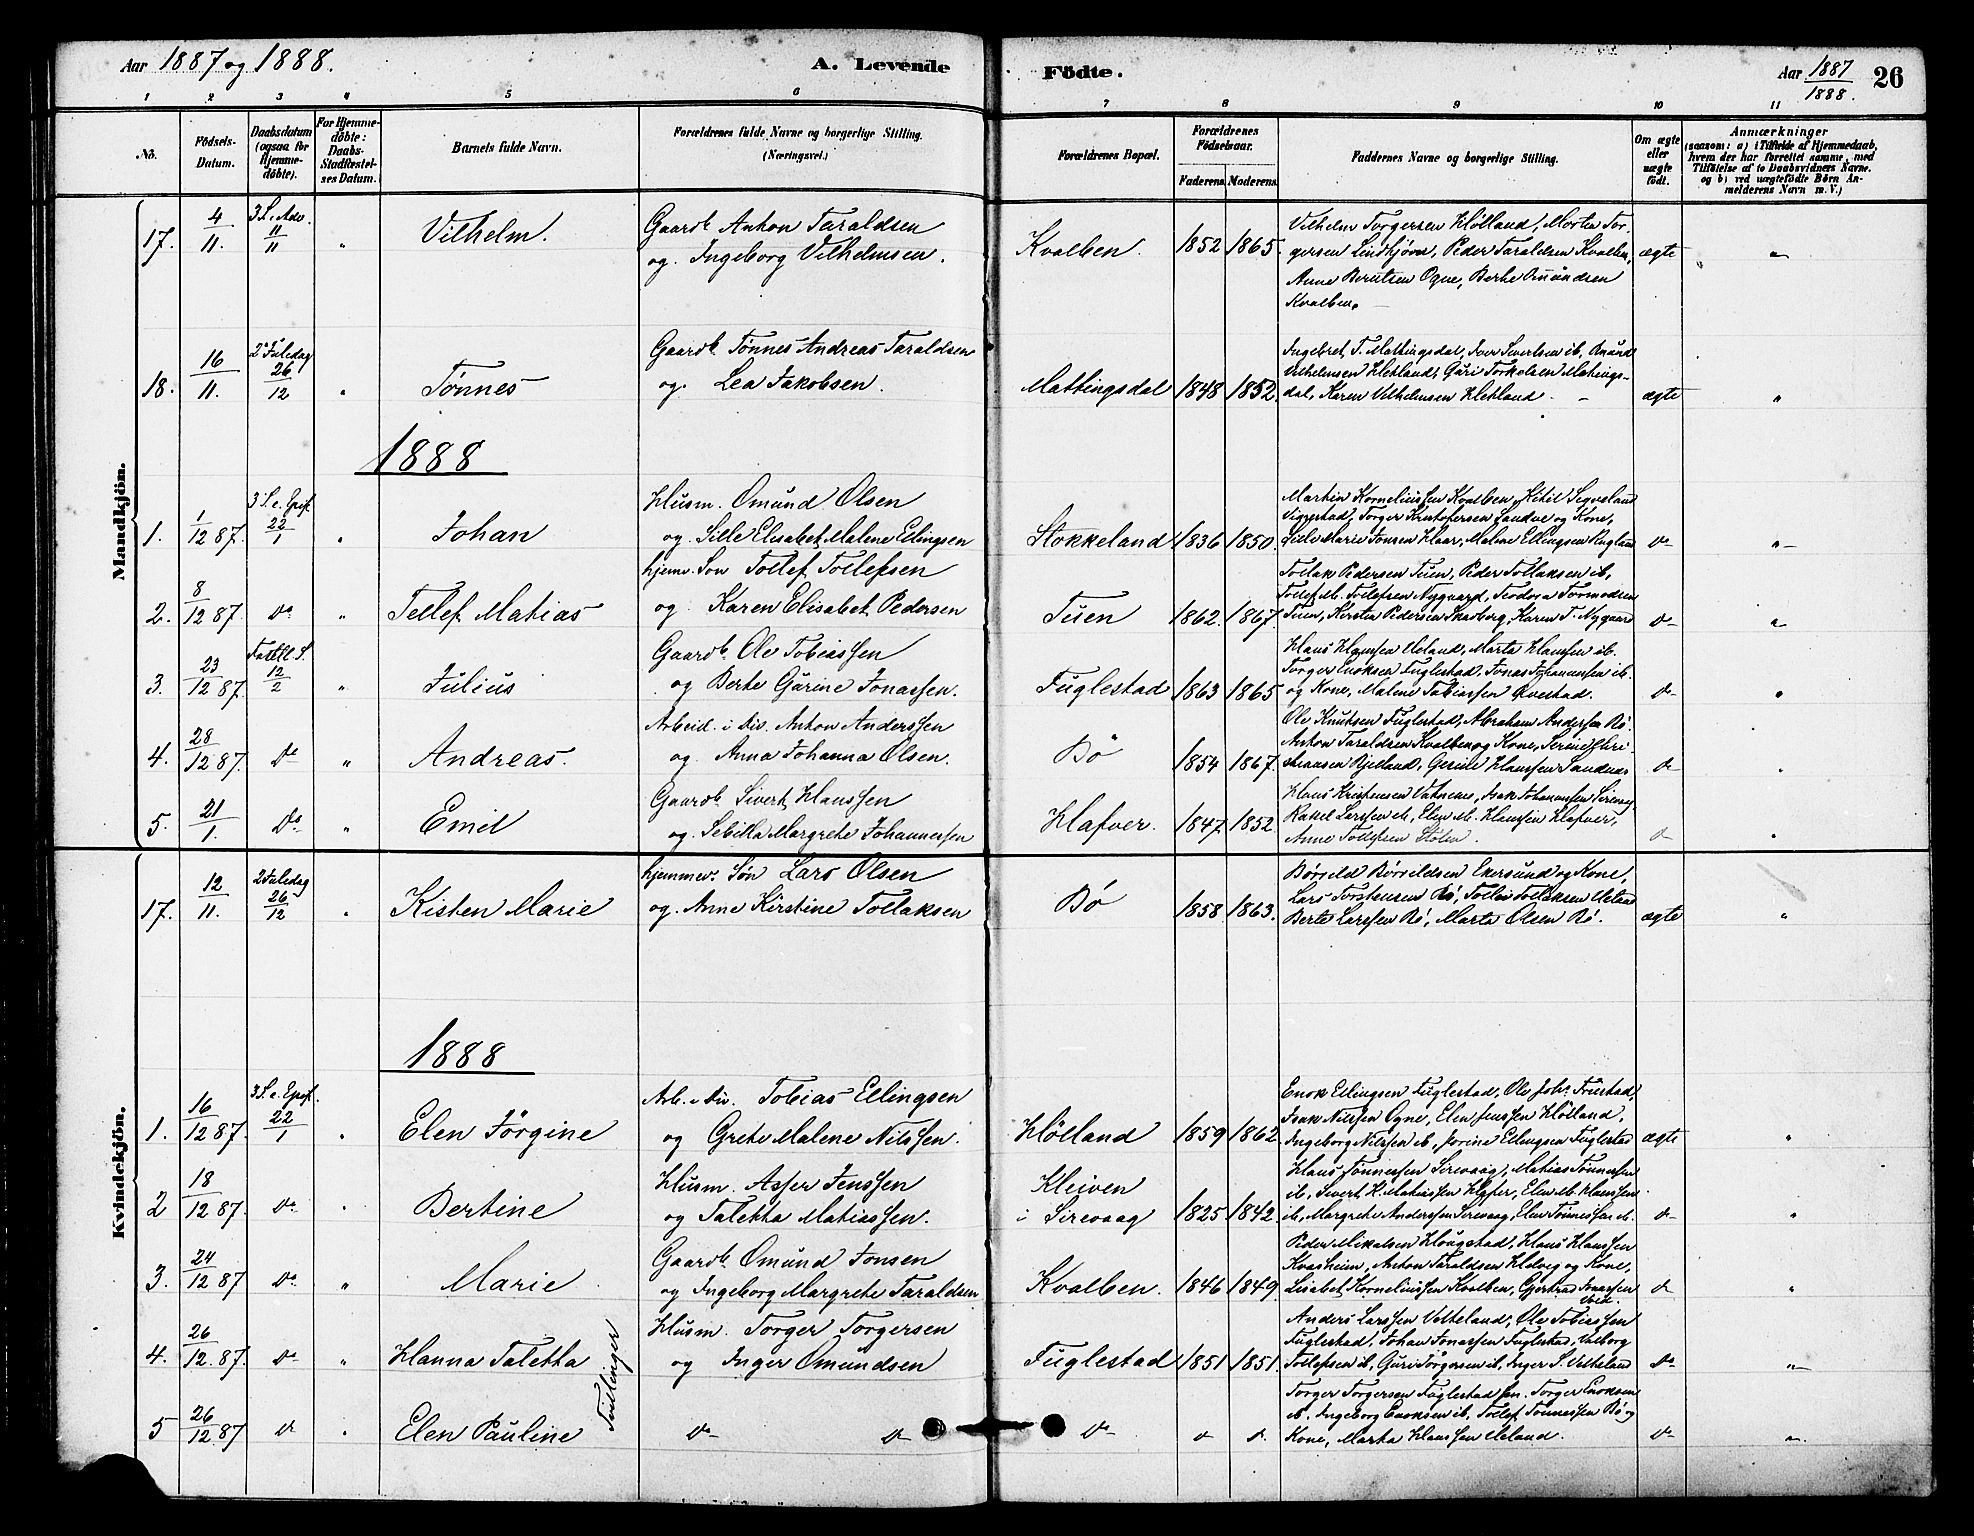 Aar 1887 og 1888.
A. Levende
Födte.
Aar 1887/1888.
26
1 2 3 4 5 6 7 8 9 10 11
No.
Födsels-Datum.
Daabsdatum (ogsaa for Hjemme-döbte).
For Hjemme-döbte: Daabs-Stadfæstel-ses Datum.
Barnets fulde Navn.
Forældrenes fulde Navne og borgerlige Stilling. (Næringsvei.)
Forældrenes Bopæl.
Forældrenes Födselsaar.
Faderens. Moderens.
Faddernes Navne og borgerlige Stilling.
Om ægte eller uægte födt.
Anmærkninger
(saasom: a) i Tilfælde af Hjemmedaab, hvem der har forrettet samme, med Tilföielse af to Daabsvidners Navne. og b) ved uægtefödte Börn An-melderens Navn m. V.)
Mandkjön.
17. 4/11. 3 S. i Adv. 11/11 " Vilhelm. Gaardb. Anton Taraldsen
og. Ingeborg Vilhelmsen. Kvalben. 1852 1865. ægte "
Vilhelm Torgersen Hölland, Marta Tor-
gersen Lindtjörn, Peder Taraldsen Kvalben,
Anna Berntsen Ogne, Berte Omundsen
Kvalben.
18. 16/11. 2 Juledag 26/12 " Tönnes Gaardb. Tönnes Andreas Taraldsen
og. Lea Jakobsen. Mattingsdal 1848 1852. ægte "
Ingebret T. Mattingsdal, Iver Sivertsen ib, Omund
Vilhelmsen Hetland, Guri Torkelsen Matings-
dal, Karen Vilhelmsen Hetland. -
1888
1. 1/12 87. 3 S. e. Epif. 22/1 " Johan Husm. Omund Olsen
og. Sille Elisabet Malene Ellingsen Stokkeland 1836 1850. do "
Martin Korneliussen Kvalben, Ketil Segveland
Vigrestad, Torger Kristofersen Landve og Kone,
Sille Marie Jonsen Haar, Malene Ellingsen
2. 8/12 87. do " Tollef Matias hjemv. Søn Tollef Tollefsen
og. Karen Elisabet Pedersen Tuen 1862. 1867. do "
Tollak Pedersen Tuen, Peder Tollaksen ib,
Tollef M. Tollefsen Nygaard, Teodora Tormodsen
Tuen, Kirsten Pedersen Skadberg, Karen T. Nygaard
3. 23/12 87. Fastel. S. 12/2 " Julius Gaardb. Ole Tobiassen
og Berte Gurine Jonassen. Fuglestad 1863 1865 do "
Hans Hanssen Ueland, Marta Hanssen ib.
Torger Enoksen Fuglestad, Jonas Johannessen ib.
og Kone, Malene Tobiassen Qvestad.
4. 28/12 87. do " Andreas. Arbeid. i Div. Anton Anderssen
og. Anna Johanna Olsen. Bö 1854 1867. do "
Ole Knutsen Fuglestad, Abraham Andersen Bö.
Anton Taraldsen Kvalben og Kone,
Gesine Hanssen Sandnæs
5. 21/1. do " Emil Gaardb. Sivert Hanssen
og. Sebilla Margrete Johannessen Hafver. 1847. 1852. do "
Hans Kristensen Vatnemo, Isak Johannessen Sirevaag
Rakel Larssen ib, Elen M. Hanssen Hafver,
Anne Tollefsen Stölen.
Kvindekjön.
17. 12/11. 2 Juledag 26/12 " Kisten Marie hjemmev. Søn Lars Olsen
og. Anne Kirstine Tollaksen Bö 1858. 1863. ægte "
Börsild Börsildsen Ekersund og Kone,
Lars Torstensen Bö, Tollak Tollaksen Ueland
Berte Larssen Bö, Marta Olsen Bö.
1888
1. 16/12 87. 3 S. e. Epif. 22/1 " Elen Jörgine Arb. i Div. Tobias Ellingsen
og Grete Malene Nilssen. Hölland 1859 1862. ægte "
Enok Ellingsen Fuglestad, Ole Johs. Fristad,
Isak Nilssen Ogne, Elen Jenssen Hölland,
Ingeborg Nilssen ib, Jorine Ellingsen Fuglestad
2 18/12 87. do " Bertine Husm. Asser Jenssen
og Taletta Matiassen. Kleiven
i Sirevaag 1825 1842. do "
Hans Tönnessen Sirevaag, Matias Tönnessen
ib, Sivert H. Matiassen Hafver, Elen M. Hanssen
ib, Margrete Anderssen Sirevaag, Elen Tönnessen ib.
3. 24/12 87 do " Marie Gaardb. Omund Jonsen
og Ingeborg Margrete Taraldsen Kvalben. 1846 1849. do "
Peder Mikalsen Haugstad, Hans Hanssen
Kvasheim, Anton Taraldsen Helvig og Kone,
Lisabet Korneliussen Kvalben, Gjertrud Jonassen
ibid
4. 26/12. 87. do " Hanna Taletta Husm. Torger Torgersen
og Inger Omundsen Fuglestad 1851 1851. do "
Anders Larssen Velteland, Ole Tobiassen
Fuglestad, Johan Jonassen Fuglestad, Valborg
Tollefsen ib, Guri Torgersen ib, Inger S. Velteland
Tvillinger
5 26/12. 87 do " Elen Pauline do do do do do do "
Torger Torgersen Fuglestad sen. Torger Enoksen
ib. Ingeborg Enoksen ib, Tollef Tönnessen Bö og
Kone, Marta Hanssen Ueland.